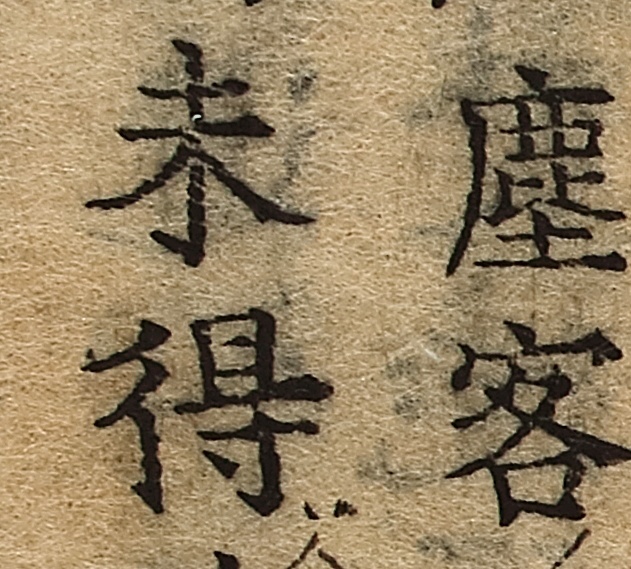 塵客
未得